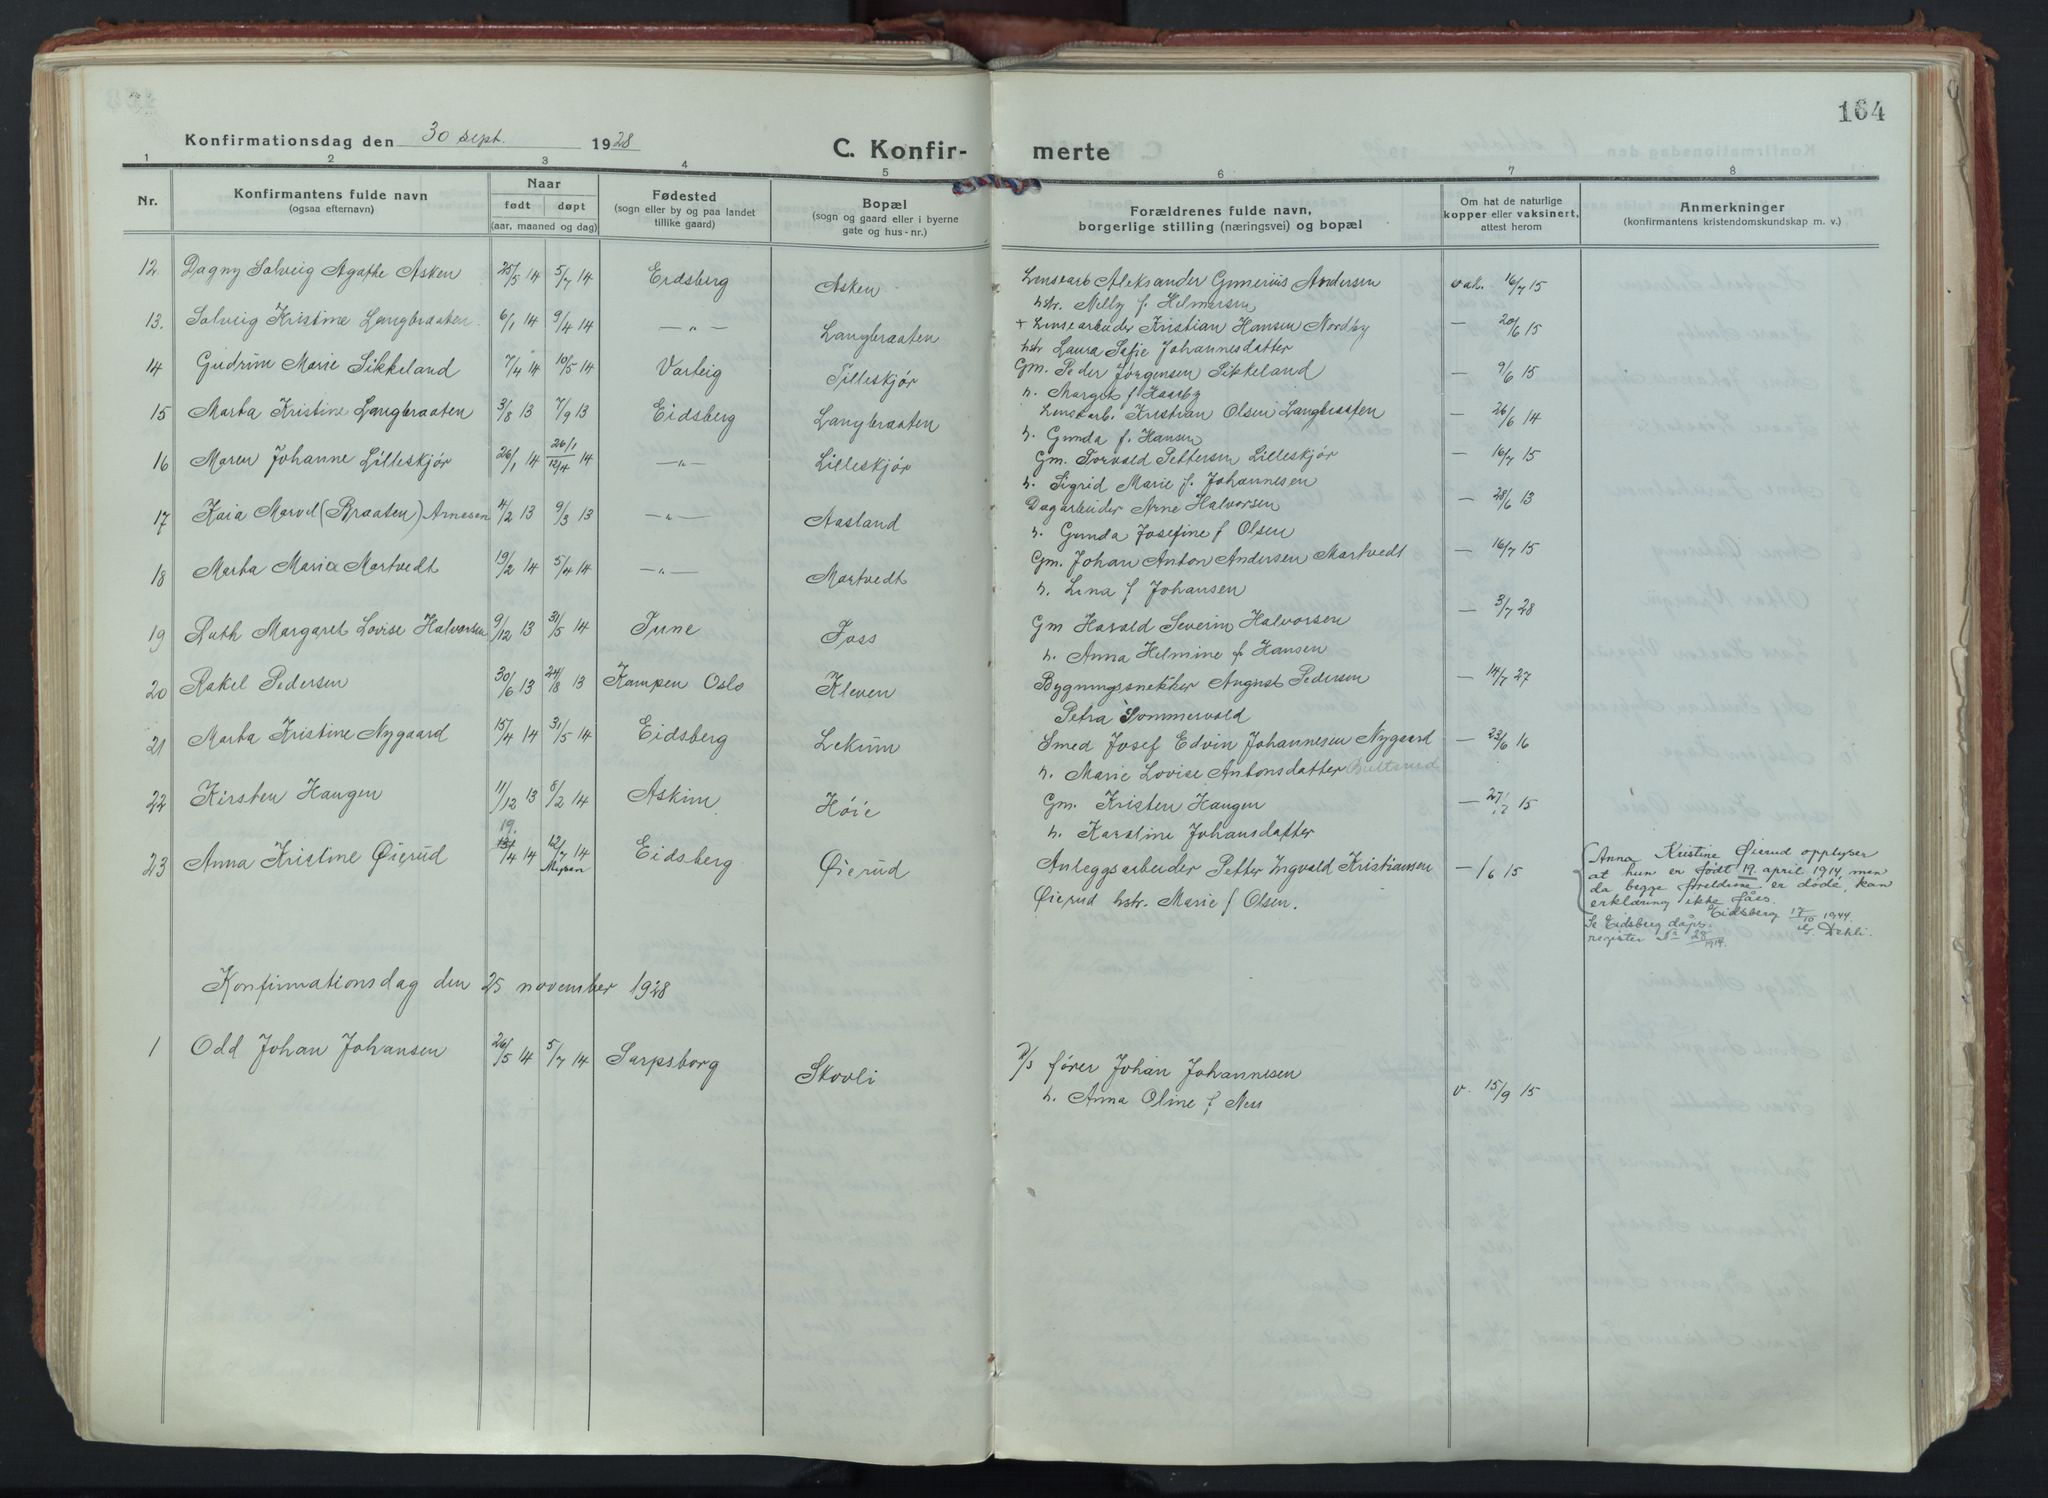 164
Konfirmationsdag den 30 sept. 1928
C. Konfir- merte
1 2 3 4 5 6 7 8
Nr.
Konfirmantens fulde navn
(ogsaa efternavn)
Naar
født døpt
(aar, maaned og dag)
Fødested
(sogn eller by og paa landet
tillike gaard)
Bopæl
(sogn og gaard eller i byerne
gate og hus-nr.)
Forældrenes fulde navn,
borgerlige stilling (næringsvei) og bopæl
Om hat de naturlige
kopper eller vaksinert,
attest herom
Anmerkninger
(konfirmantens kristendomskundskap m. v.)
12 Dagny Solveig Agathe Asken 25/5 14 5/7 14 Eidsberg Asken Lensearb Aleksander Gunerius Andersen vak. 16/7 15
h str. Nelly f. Helmersen
13. Solveig Kristine Langbraaten 6/1 14 9/4 14 —„— Langbraaten + Lensearbeider Kristian Hansen Nordby — 20/6 15
hstr Laura Sofie Johannesdatter
14 Gudrun Marie Sikkeland 7/4 14 10/5 14 Varteig Lilleskjør Gm. Peder Jørgensen Sikkeland — 9/6 15
h. Margit f Haarby
15 Marta Kristine Langbraaten 3/8 13 7/9 13 Eidsberg Langbraaten Lensearb. Kristian Olsen Langbraaten — 26/6 14
h. Gunda f. Hansen
16 Maren Johanne Lilleskjør 26/1 14 26/1 12/4 14 —„— Lilleskjør Gm. Torvald Pettersen Lilleskjør — 16/7 15
h. Sigrid Marie f. Johannesen
17 Kaia Marvel (Braaten) Arnesen 4/2 13 9/3 13 —„— Aasland Dagarbeider Arne Halvorsen — 28/6 13
h. Gunda Josefine f Olsen
18 Marta Marie Martvedt 19/2 14 5/4 14 —„— Martvedt Gm. Johan Anton Andersen Martvedt — 16/7 15
h. Lina f Johansen
19 Ruth Margaret Lovise Halvorsen 9/12 13 31/5 14 Tune Foss Gm Harald Severin Halvorsen — 3/7 28
h. Anna Helmine f Hansen
20 Rakel Pedersen 30/6 13 24/8 13 Kampen Oslo Kleven Bygningssnekker August Pedersen — 14/7 27
Petra Sommervold
21 Marta Kristine Nygaard 15/4 14 31/5 14 Eidsberg Lekum Smed Josef Edvin Johannesen Nygaard — 23/6 16
h. Marie Lovise Antonsdatter
22 Kirsten Haugen 11/12 13 8/2 14 Askim Høie Gm. Kristen Haugen — 27/ 15
h. Karoline Johansdatter
19.
23 Anna Kristine Øierud /4 14 12/7 14 Eidsberg Øierud Anleggsarbeider Petter Ingvald Kristiansen — /6 15
Mysen
Øierud hstr. Marie f Olsen.
Anna Kristine Øierud opplyser
at hun er født 19. april 1914, men
da begge foreldrene er døde, kan
erklæring ikke fåes.
Eidsberg 17/10 1944.
Dehli.
Se Eidsberg dåps-
register No 28/1914.
Konfirmationsdag den 25 november 1928
1 Odd Johan Johansen 26/5 14 5/7 14 Sarpsborg Skovli D/S fører Johan Johannesen
h. Anna Oline f Ness v. 15/9 15